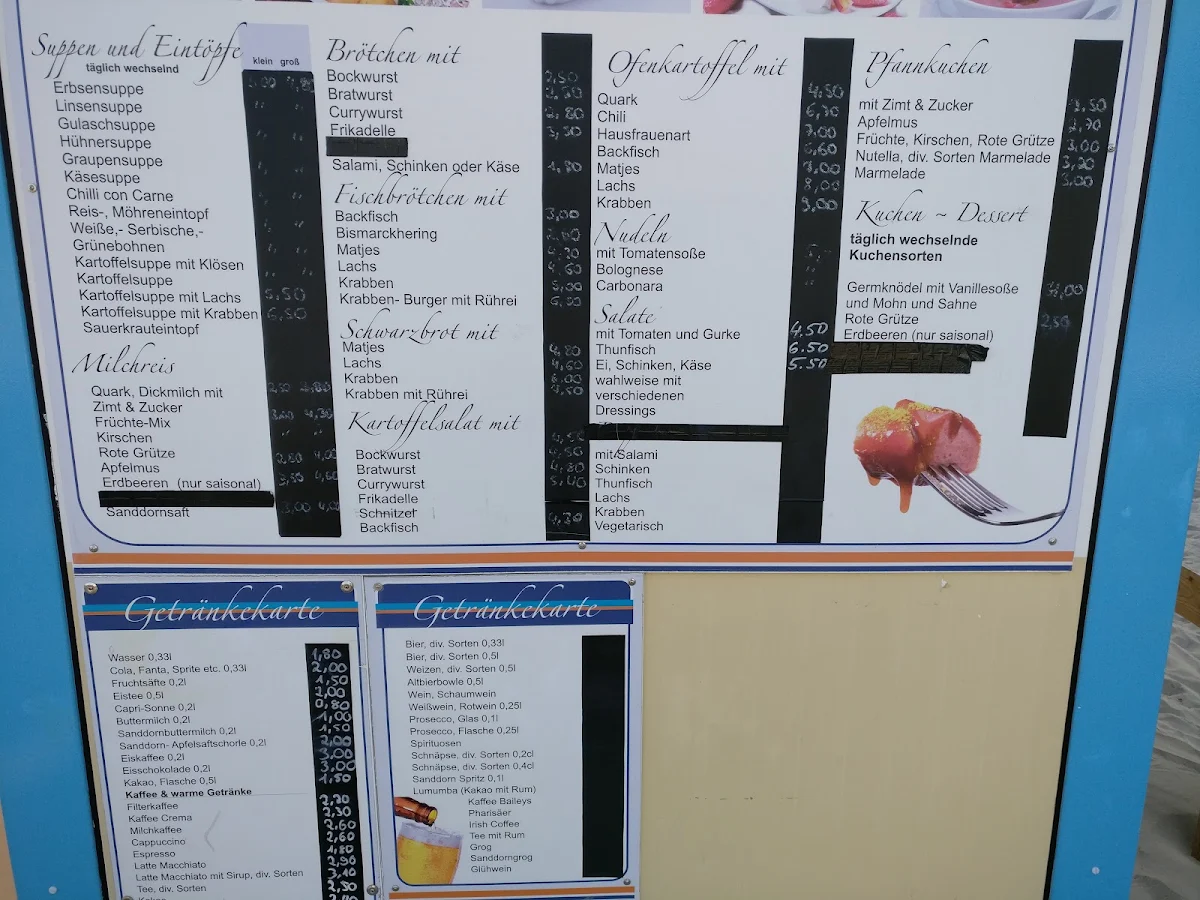 Suppen und Eintöpfe
täglich wechselnd
klein groß
Erbsensuppe
Linsensuppe
Gulaschsuppe
Hühnersuppe
Graupensuppe
Käsesuppe
Chilli con Carne
Reis-, Möhreneintopf
Weiße,- Serbische,-
Grünebohnen
Kartoffelsuppe mit Klösen
Kartoffelsuppe
Kartoffelsuppe mit Lachs 5,50
Kartoffelsuppe mit Krabben 6,50
Sauerkrauteintopf
Milchreis
Quark, Dickmilch mit
Zimt & Zucker
Früchte-Mix
Kirschen
Rote Grütze
Apfelmus
Erdbeeren (nur saisonal)
Sanddornsaft
Brötchen mit
Bockwurst 2,50
Bratwurst
Currywurst 2,80
Frikadelle
Salami, Schinken oder Käse 1,80
Fischbrötchen mit
Backfisch 3,00
Bismarckhering
Matjes
Lachs
Krabben 5,00
Krabben- Burger mit Rührei
Schwarzbrot mit
Matjes 4,80
Lachs 4,60
Krabben 6,00
Krabben mit Rührei
Kartoffelsalat mit
Bockwurst
Bratwurst
Currywurst
Frikadelle
Schnitzel
Backfisch
Ofenkartoffel mit
Quark 4,50
Chili
Hausfrauenart 7,00
Backfisch 6,60
Matjes 7,00
Lachs 8,00
Krabben 9,00
Nudeln
mit Tomatensoße
Bolognese
Carbonara
Salate
mit Tomaten und Gurke 4.50
Thunfisch 6.50
Ei, Schinken, Käse 5.50
wahlweise mit
verschiedenen
Dressings
mit Salami
Schinken
Thunfisch
Lachs
Krabben
Vegetarisch
Pfannkuchen
mit Zimt & Zucker
Apfelmus
Früchte, Kirschen, Rote Grütze 3,00
Nutella, div. Sorten Marmelade 3,20
Marmelade 3,00
Kuchen ~ Dessert
täglich wechselnde
Kuchensorten
Germknödel mit Vanillesoße
und Mohn und Sahne
Rote Grütze 2,50
Erdbeeren (nur saisonal)
Getränkekarte
Wasser 0,33l 1,80
Cola, Fanta, Sprite etc. 0,33l 2,00
Fruchtsäfte 0,2l 1,50
Eistee 0,5l 2,00
Capri-Sonne 0,2l 0,80
Buttermilch 0,2l 1,00
Sanddornbuttermilch 0,2l 1,50
Sanddorn- Apfelsaftschorle 0,2l 2,00
Eiskaffee 0,2l 3,00
Eisschokolade 0,2l 3,00
Kakao, Flasche 0,5l 1,50
Kaffee & warme Getränke
Filterkaffee 2,20
Kaffee Crema 2,30
Milchkaffee 2,60
Cappuccino 2,60
Espresso 1,80
Latte Macchiato 2,90
Latte Macchiato mit Sirup, div. Sorten 3,10
Tee, div. Sorten 2,30
Kakao
Getränkekarte
Bier, div. Sorten 0,33l
Bier, div. Sorten 0,5l
Weizen, div. Sorten 0,5l
Altbierbowle 0,5l
Wein, Schaumwein
Weißwein, Rotwein 0,25l
Prosecco, Glas 0,1l
Prosecco, Flasche 0,25l
Spirituosen
Schnäpse, div. Sorten 0,2cl
Schnäpse, div. Sorten 0,4cl
Sanddorn Spritz 0,1l
Lumumba (Kakao mit Rum)
Kaffee Baileys
Pharisäer
Irish Coffee
Tee mit Rum
Grog
Sanddorngrog
Glühwein